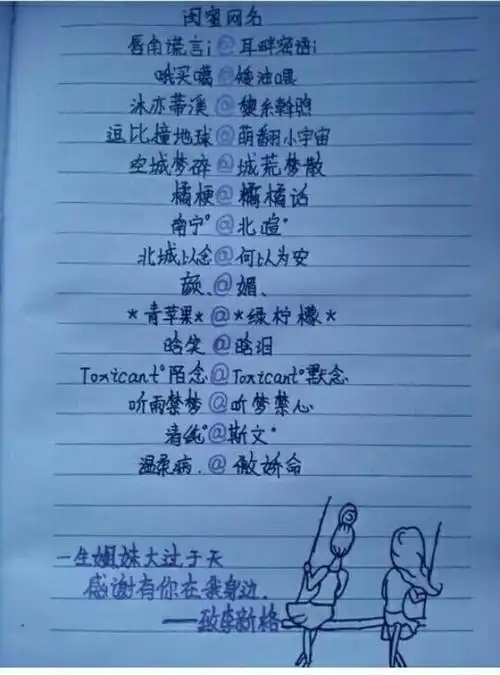 闺蜜网名
唇角谎言i@耳畔密语i
哦买噶@矮油喂
沐亦蒂溪@黎糸斡煦
逗比撞地球@萌翻小宇宙
空城梦碎@城荒梦散
橘梗@橘话
南宁°@北暄°
北城以念@何以为安
颜、@媚、
*青苹果*@*绿柠檬*
晗笑@晗泪
Toxicant°陌念@Toxicant°默念
听雨禁梦@听梦禁心
清纯°@斯文°
温柔病.@傲娇命
一生姐妹大过于天
感谢有你在我身边.
——致李新格